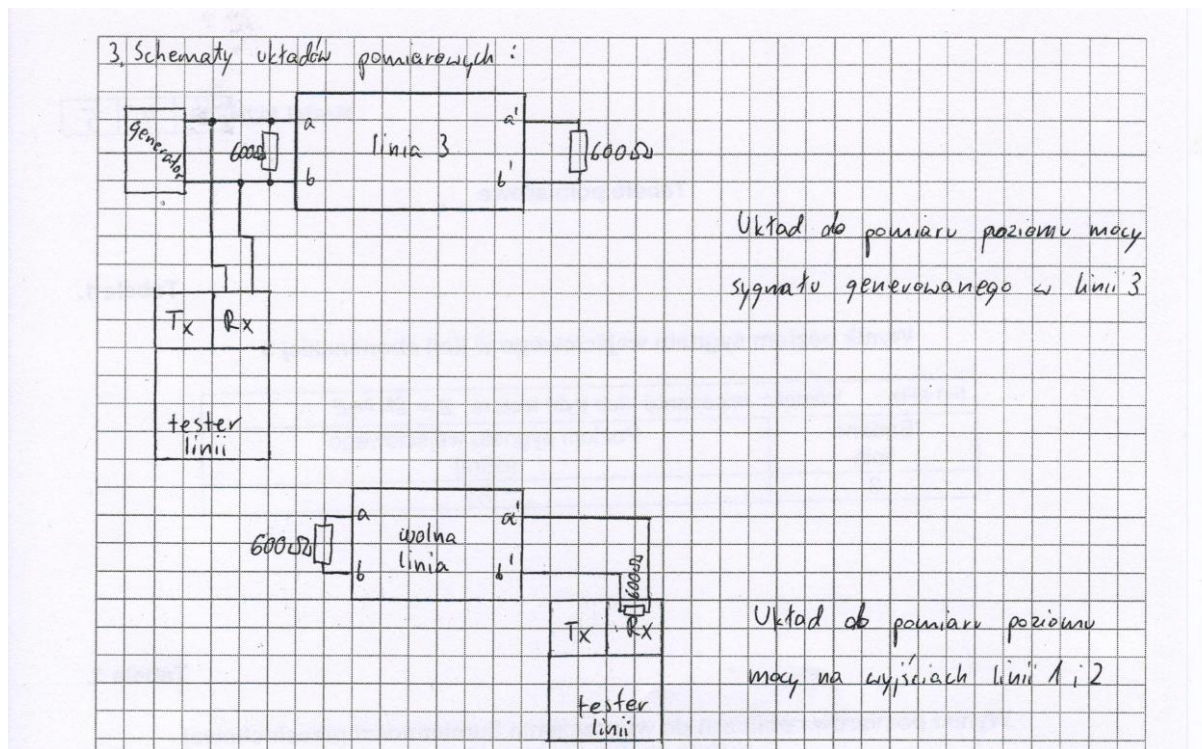 3. Schematy układów pomiarowych :
generator
600Ω
a
b
linia 3
a'
b'
600Ω
Układ do pomiaru poziomu mocy
sygnału generowanego w linii 3
Tx Rx
tester
linii
600Ω
a
b
wolna
linia
a'
b'
600Ω
Tx Rx
tester
linii
Układ do pomiaru poziomu
mocy na wyjściach linii 1 i 2
Tabela 1.